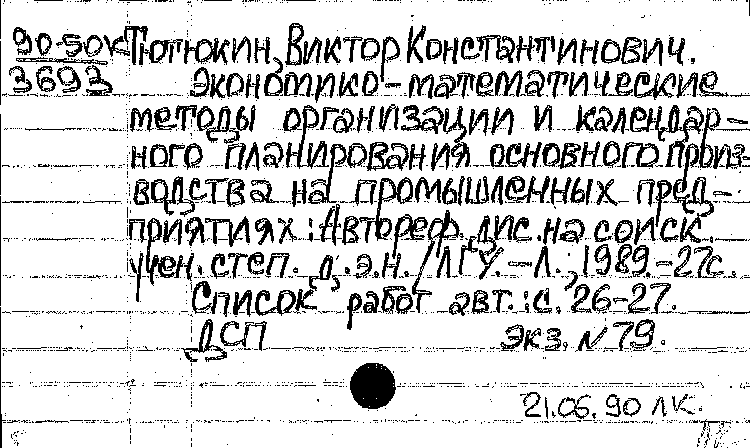 90-50к Тютюкин, Виктор Константинович.
3693 Экономико-математические
методы организации и календар-
ного планирования основного произ-
водства на промышленных пред-
приятиях : Автореф. дис. на соиск.
учен. степ. д.э.н. / ЛГУ. - Л., 1989. - 27с.
Список работ авт.: с. 26-27.
ДСП Экз. N 79.
21.06.90 ЛК.